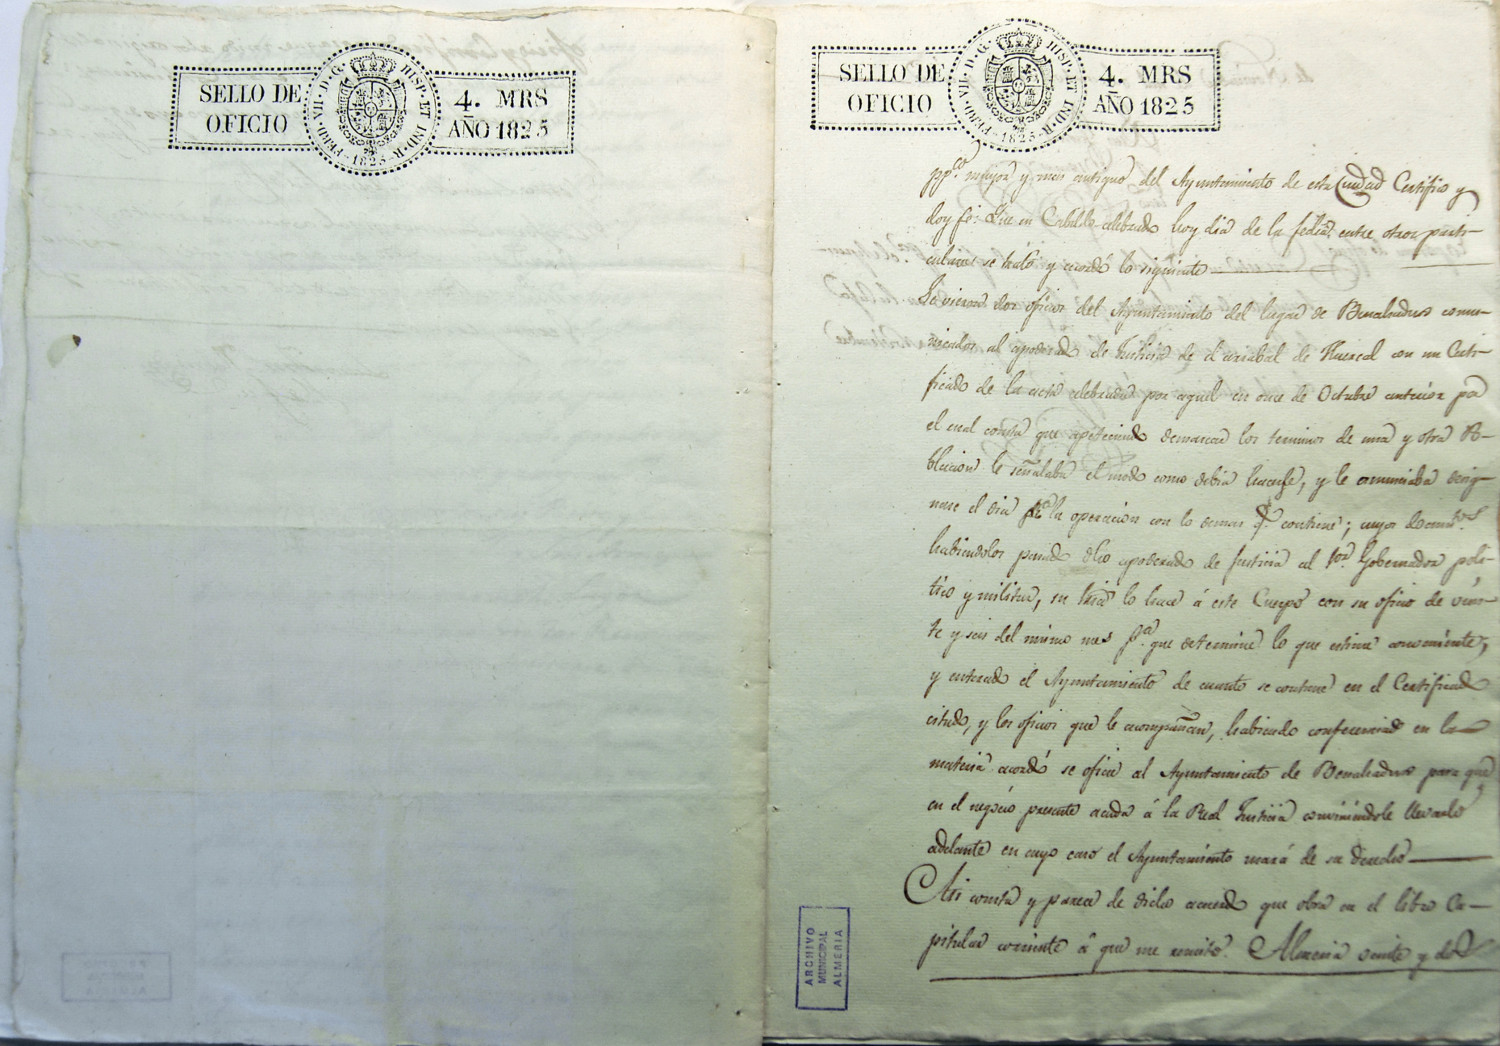 SELLO DE
OFICIO
FERD. VII. D. G. HISP. ET IND. R.
1825
4. MRS
AÑO 1825
SELLO DE
OFICIO
FERD. VII. D. G. HISP. ET IND. R.
1825
4. MRS
AÑO 1825
ppco. mayor y mas antiguo del Ayuntamiento de esta Ciudad Certifico y
doy fe: Que en Cabildo celebrado hoy dia de la fecha, entre otros parti-
culares se trató y acordó lo siguiente
Se vieron dos oficios del Ayuntamiento del lugar de Benahadux comu-
nicados al apoderado de Justicia de el arrabal de Huercal con un Certi-
ficado de la acta celebrada por aquel en once de Octubre anterior por
el cual consta que apeteciendo demarcar los terminos de una y otra Po-
blacion le señalaba el modo como debia hacerse, y le anunciaba desig-
nase el dia pa. la operacion con lo demas q. contiene; cuyos documtos.
habiendolos pasado dho apoderado de Justicia al Sor. Gobernador poli-
tico y militar, su Sria lo hace á este Cuerpo con su oficio de vein-
te y seis del mismo mes pa. que determine lo que estime conveniente;
y enterado el Ayuntamiento de cuanto se contiene en el Certificado
citado, y los oficios que le acompañan, habiendo conferenciado en la
materia acordó se oficie al Ayuntamiento de Benahadux para que
en el negocio presente acuda á la Real Justicia conviniéndole llevarlo
adelante en cuyo caso el Ayuntamiento usará de su derecho
Asi consta y parece de dicho acuerdo que obra en el libro Ca-
pitular corriente á que me remito. Almeria veinte y dos
ARCHIVO
MUNICIPAL
ALMERIA